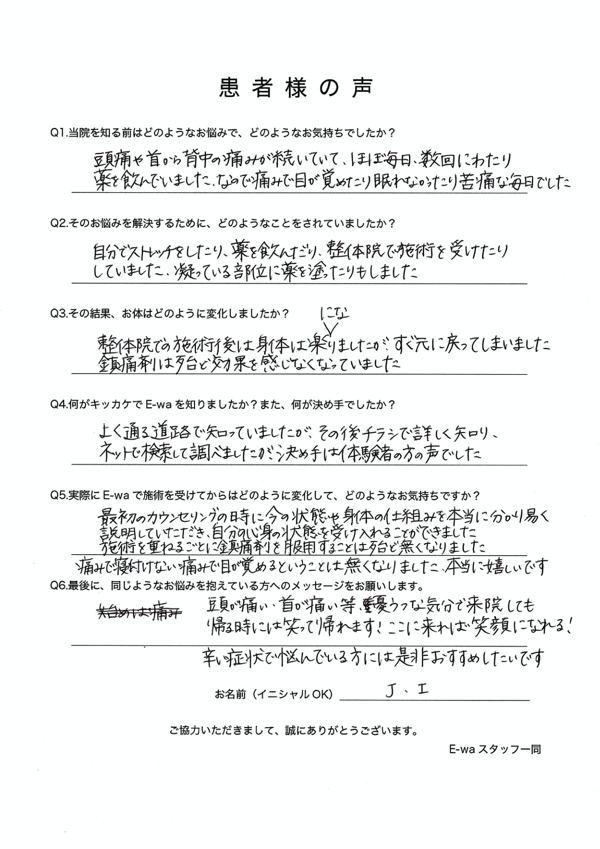 患者様の声
Q1.当院を知る前はどのようなお悩みで、どのようなお気持ちでしたか？
頭痛や首から背中の痛みが続いていて、ほぼ毎日、数回にわたり
薬を飲んでいました、なので痛みで目が覚めたり眠れなかったり苦痛な毎日でした
Q2.そのお悩みを解決するために、どのようなことをされていましたか？
自分でストレッチをしたり、薬を飲んだり、整体院で施術を受けたり
していました、凝っている部位に薬を塗ったりもしました
Q3.その結果、お体はどのように変化しましたか？
にな
整体院での施術後は身体は楽りましたが、すぐ元に戻ってしまいました
鎮痛剤は殆ど効果を感じなくなっていました
Q4.何がキッカケでE-waを知りましたか？また、何が決め手でしたか？
よく通る道路で知っていましたが、その後チラシで詳しく知り、
ネットで検索して調べましたが、決め手は体験者の方の声でした
Q5.実際にE-waで施術を受けてからはどのように変化して、どのようなお気持ちですか？
最初のカウンセリングの時に今の状態や身体の仕組みを本当に分かり易く
説明していただき、自分の心身の状態を受け入れることができました
施術を重ねるごとに鎮痛剤を服用することは殆ど無くなりました
痛みで寝付けない痛みで目が覚めるということは無くなりました、本当に嬉しいです
Q6.最後に、同じようなお悩みを抱えている方へのメッセージをお願いします。
始めは痛み
頭が痛い、首が痛い等、憂うつな気分で来院しても
帰る時には笑って帰れます！ここに来れば笑顔になれる！
辛い症状で悩んでいる方には是非おすすめしたいです
お名前（イニシャルOK） J．I
ご協力いただきまして、誠にありがとうございます。
E-waスタッフ一同